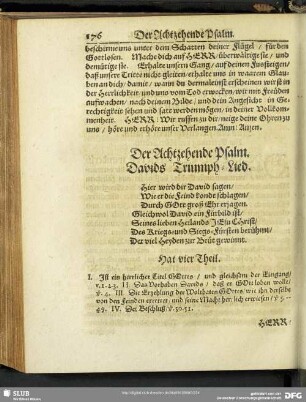 176
Der Achtzehende Psalm.
beschirme uns unter dem Schatten deiner Flügel / für den
Gottlosen. Mache dich auf HERR / überwältige sie / und
demütige sie. Erhalte unsern Gang / auf deinen Fußsteigen /
daß unsere Tritte nicht gleiten / erhalte uns in waarem Glau-
ben an dich / damit / wann du dermaleinst erscheinen wirst in
der Herrlichkeit und uns vom Tod erwecken / wir mit Freuden
aufwachen / nach deinem Bilde / und dein Angesicht in Ge-
rechtigkeit sehen und satt werden mögen / in deiner Vollkom-
menheit. HERR / Wir ruffen zu dir / neige deine Ohren zu
uns / höre und erhöre unser Verlangen Amen / Amen.
Der Achtzehende Psalm.
Davids Triumph-Lied.
Hier wird dir David sagen /
Wie er die Feind konde schlagen /
Durch GOtt groß Ehr erjagen.
Gleichwol David ein Fürbild ist /
Seines lieben Heilands JEsu Christ /
Des Kriegs und Siegs-Fürsten berühmt /
Der viel Heyden zur Beut gewinnt.
Hat vier Theil.
I. Ist ein herrlicher Titel GOttes / und gleichsam der Eingang /
v. 1. 2. 3. II. Das Vorhaben Davids / daß er GOtt loben wolle /
v. 4. III. Die Erzehlung der Wolthaten GOttes / wie ihn derselbe
von den Feinden errettet / und seine Macht herrlich erwiesen / v. 5. -
49. IV. Der Beschluß / v. 50. 51.
HERR /
SLUB
Wir führen Wissen.
DFG